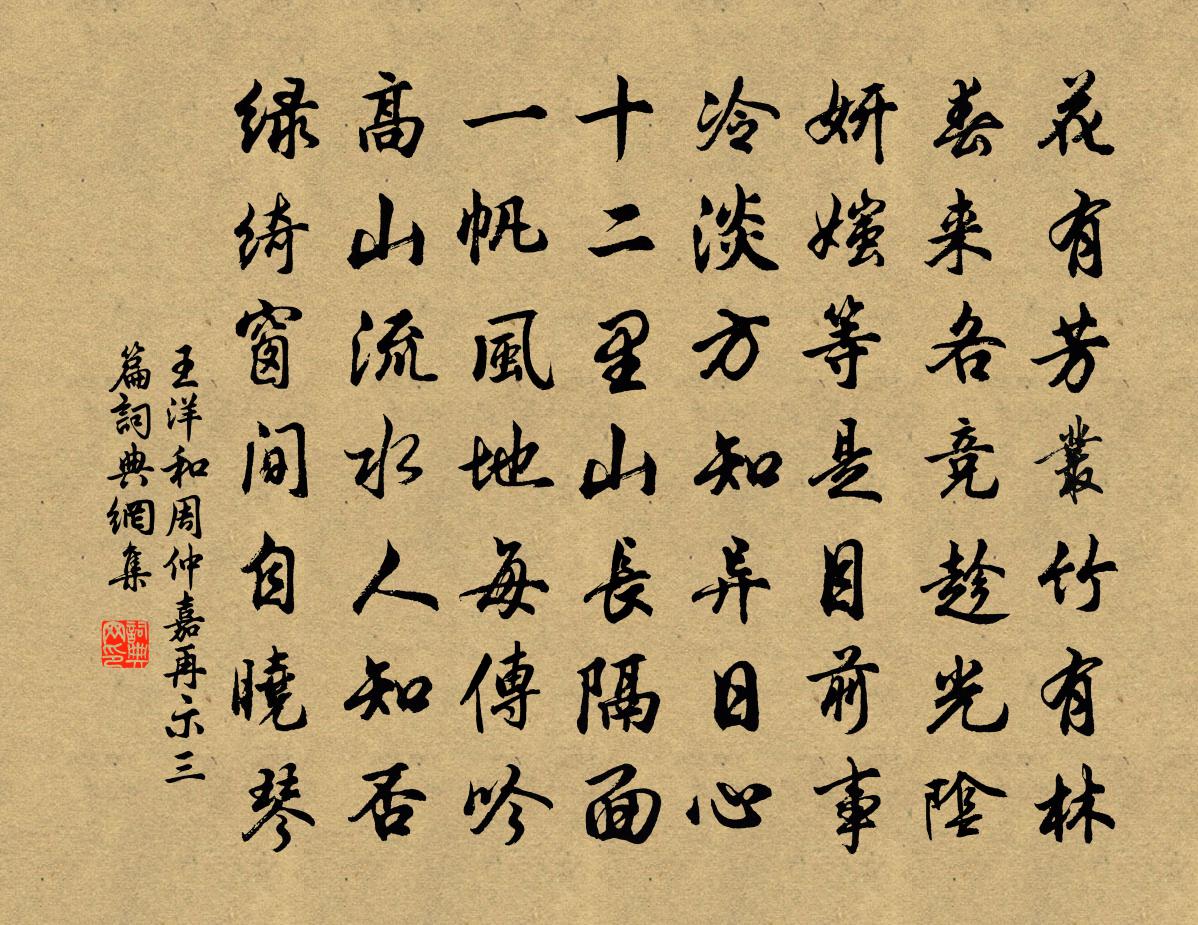 花有芳叢竹有林
春来各竞趁光陰
妍媸等是目前事
冷淡方知异日心
十二里山長隔面
一帆風地每傳吟
高山流水人知否
绿绮窗间自曉琴
王洋和周仲嘉再示三
篇詞典網集
詞典
网印